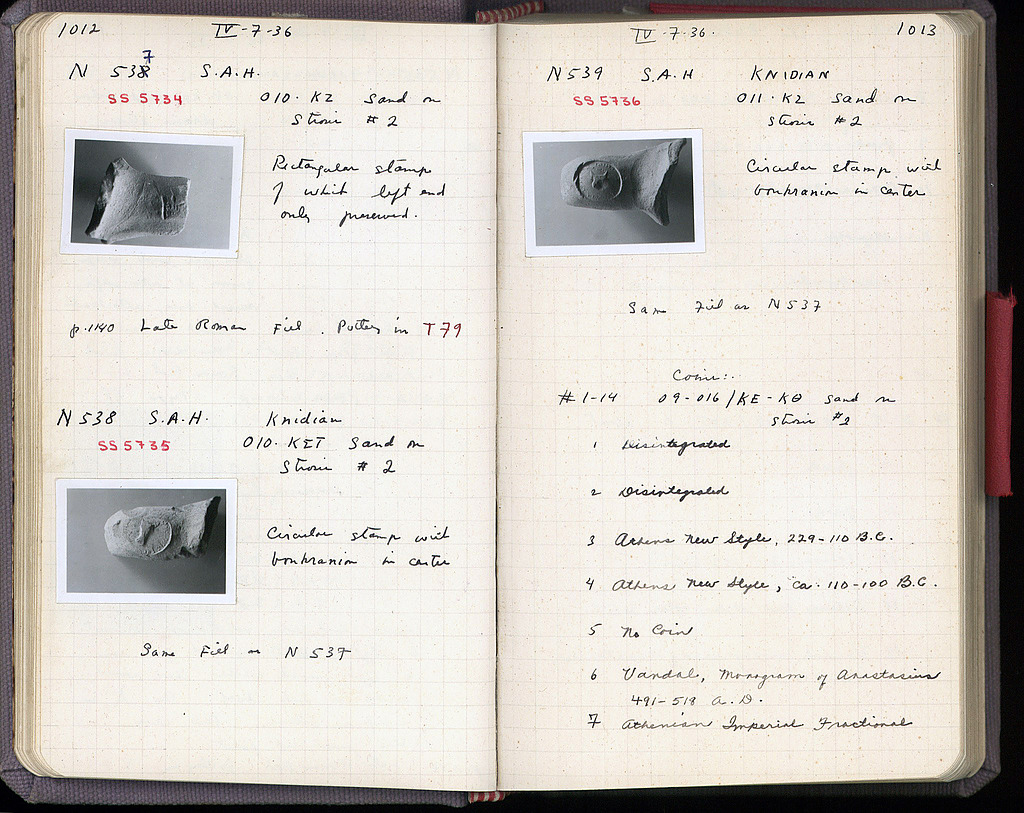 1012 IV-7-36
7
N 538 S.A.H.
SS 5734 010. KZ Sand on
Strosis # 2
Rectangular stamp
of which left end
only preserved.
p.1140 Late Roman Fill. Pottery in T79
N 538 S.A.H. Knidian
SS 5735 010. Sand on
Strosis # 2
Circular stamp with
boukranion in center
Same Fill as N 537
IV-7-36. 1013
N 539 S.A.H KNIDIAN
SS 5736 011. KZ Sand on
Strosis # 2
Circular stamp with
boukranion in center
Same Fill as N 537
Coins:
# 1-14 09-016/KE-KΘ sand on
strosis #2
1 Disintegrated
2 Disintegrated
3 Athens New Style, 229-110 B.C.
4 Athens New Style, ca. 110-100 B.C.
5 No Coin
6 Vandal, Monogram of Anastasius
491-518 A.D.
7 Athenian Imperial Fractional